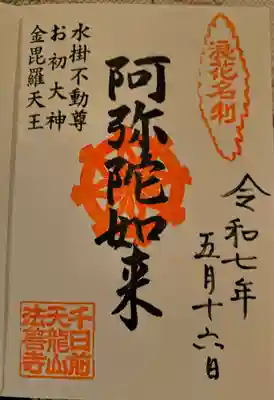 浪花名刹
令和七年
五月十六日
阿弥陀如来
水掛不動尊
お初大神
金毘羅天王
千日前
天龍山
法善寺